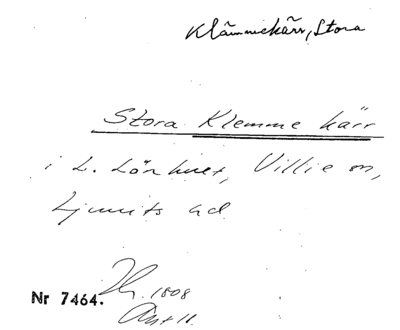 Klämmekärr, Stora
Stora Klemme kärr
i L. Lönhult, Villie sn,
Ljunits hd
Nr 7464. 1808
Akt 11.